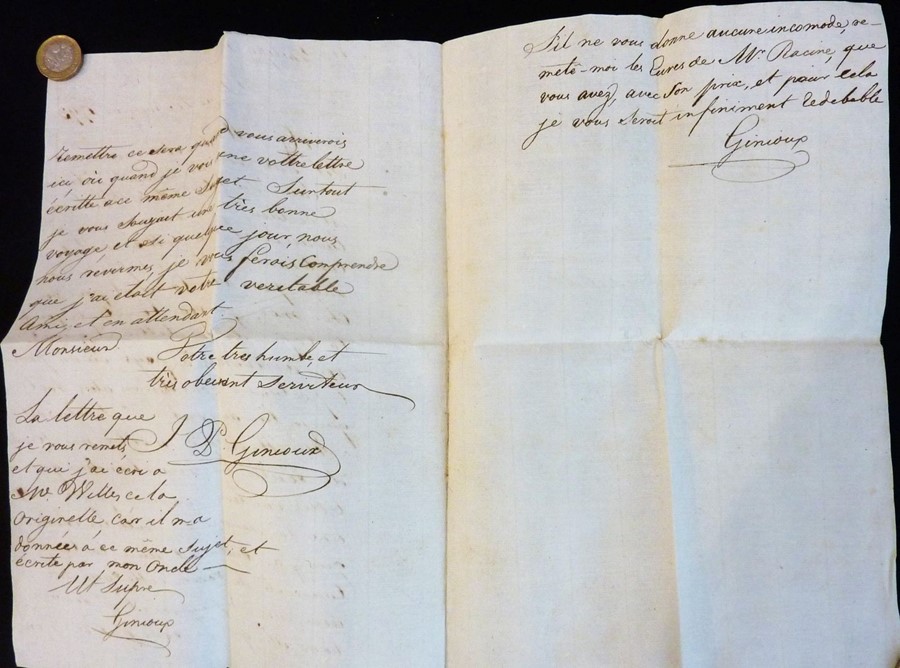 remettre ce sera quand vous arriverois
ici où quand je vous une vottre lettre
écritte a ce même Sujet. Surtout
je vous Souzait un très bonne
voyage et si quelque jour nous
nous révermes, je vous ferois Comprendre
que j'ai etait votre veritable
Ami, et en attendant
Monsieur Votre tres humble, et
très obeisent Serviteur
J P. Ginioux
La lettre que
je vous remets
et que j'ai écri a
Mr. Willes ce la
Originelle, car il m'a
données a ce même Sujet, et
écrite par mon Oncle
Ut Supra
Ginioux
S'il ne vous donne aucune incomode, re-
meté-moi les Eures de Mr. Racine, que
vous avez, avec Son prix, et pour cela
je vous Seroit infiniment redebable
Ginioux